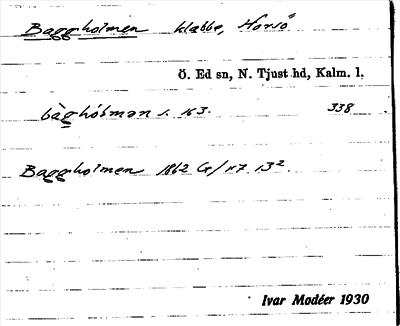 Baggholmen klabbe, Horsö
Ö. Ed sn, N. Tjust hd, Kalm. l.
338
Baggholmen 1862 G/117 13²
Ivar Modéer 1930